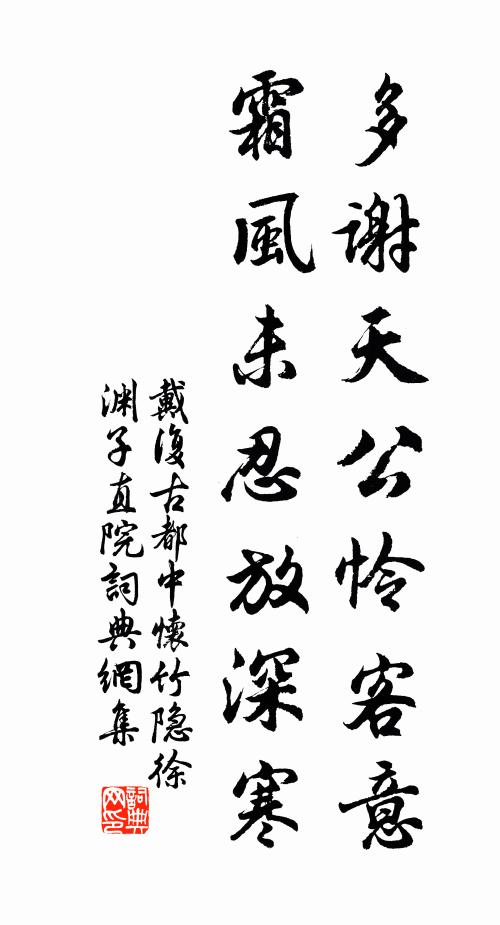 多謝天公怜客意
霜風未忍放深寒
戴復古都中懷竹隐徐
渊子直院詞典網集
詞典
网印